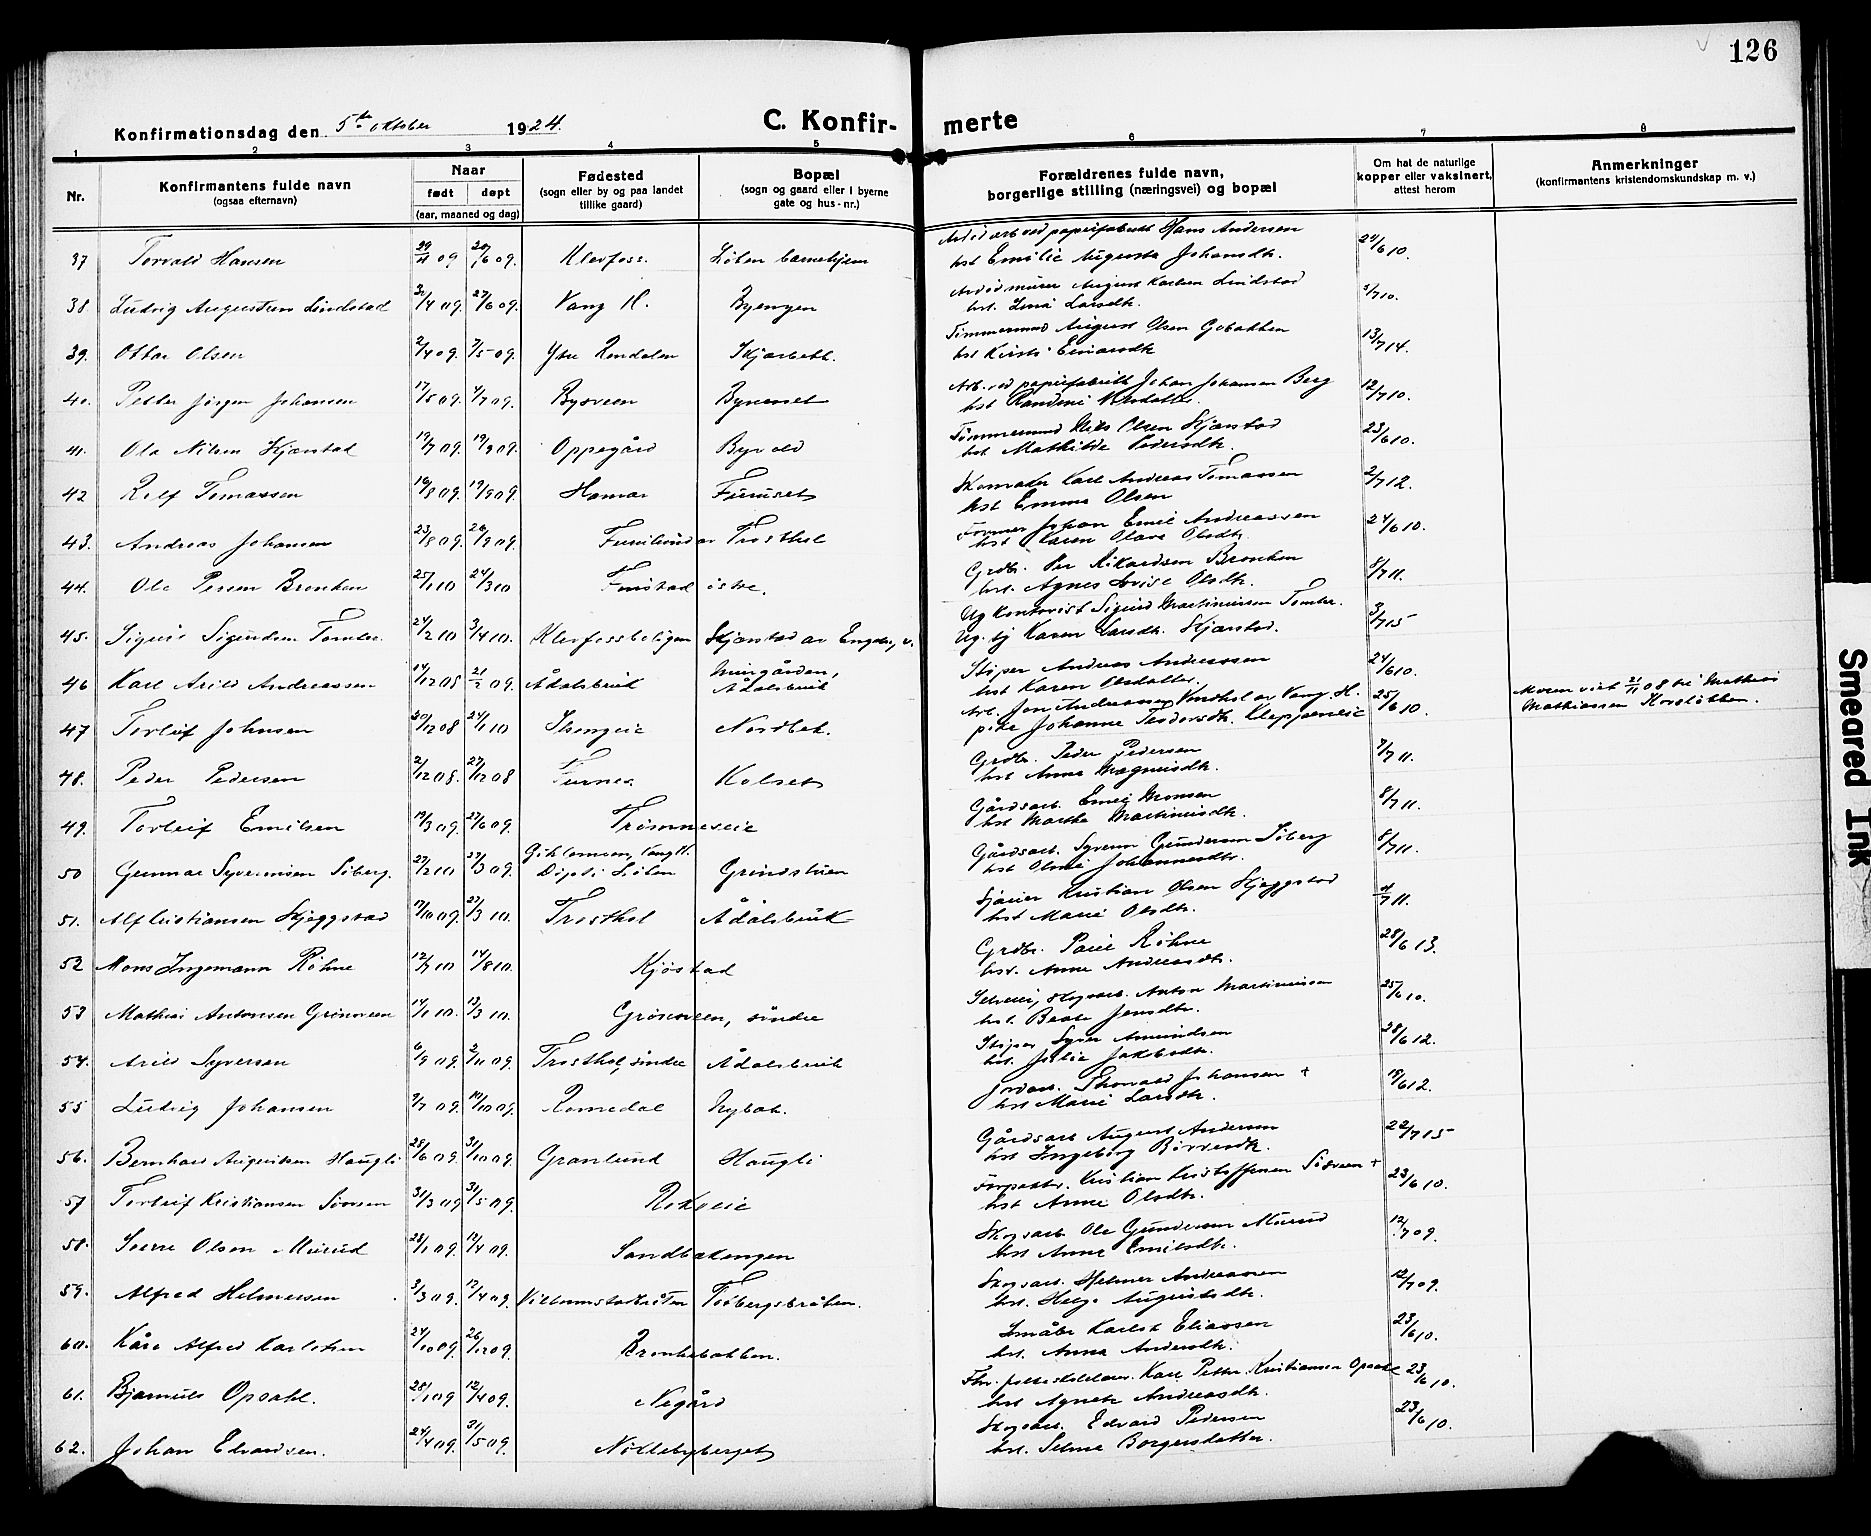 126
Konfirmationsdag den 5te oktober 1924.
C. Konfir-merte
1 2 3 4 5 6 7 8
Nr.
Konfirmantens fulde navn
(ogsaa efternavn)
Naar
født døpt
(aar, maaned og dag)
Fødested
(sogn eller by og paa landet
tillike gaard)
Bopæl
(sogn og gaard eller i byerne
gate og hus-nr.)
Forældrenes fulde navn,
borgerlige stilling (næringsvei) og bopæl
Om hat de naturlige
kopper eller vaksinert,
attest herom
Anmerkninger
(konfirmantens kristendomskundskap m. v.)
37 Torvald Hansen 09 20/6 09. Klevfoss. Løten barnehjem papirfabrikk Hans Andersen 24/6 10.
hst Emilie Augusta Johansdtr.
38. Ludvig Augustsen Lindstad /4 09. 27/6 09. Vang H. Byengen murer August Karlsen Lindstad /7 10.
hst. Lina Larsdtr.
39. Ottar Olsen 2/4 09. 7/5 09. Ytre Rendalen Skjærbekk. Tømmermand August Olsen 13/7 14.
hst Kirsti Einarsdtr
40. Petter Jørgen Johansen 17/5 09. 4/7 09. Bysveen Byneset Arb. ved papirfabrikk Johan Johansen Berg 12/7 10.
hst Randine
41. Ola Nilsen Kjærstad 19/7 09. 19/9 09. Oppegård Byvold Tømmermand Nils Olsen Skjærstad 23/6 10.
hst Mathilde Pedersdtr.
42 Rolf Tomassen 19/8 09. 19/9 09. Hamar Furuset Skomaker Karl Andreas Tomassen 2/7 12.
hst Emma Olsen
43. Andreas Johansen 23/8 09. 26/9 09. Furulund av Trosthol Former Johan Emil Andreassen 24/6 10.
hst Karen Olava Olsdtr.
44. Ole Persen Brenken 25/1 10 24/3 10 Finstad østre. Grdbr. Per Rikardsen Brenken 8/7 11.
hst. Agnes Lovise Olsdtr.
45. Sigurd Sigurdsen Tomter. 24/2 10 3/4 10. Klevfossboligen Skjærstad av Engebr. v. Ug kontorist Sigurd Martiniussen Tomter. 3/7 15
Ug. pj Karen Larsdtr. Skjærstad.
46 Karl Arild Andreassen 14/12 08 21/2 09. Ådalsbruk Murgården, Ådalsbruk Støper Andreas Andreassen 24/6 10.
hst Karen Olsdatter.
47 Torleif Johnsen 20/12 08 24/1 10 Stengeie Nordbek. Arb. Jon Andreassen av Vang. H. 25/6 10.
pike Johanne Teodorsdtr. Kleppeneie
Moren vist 21/11 08 til Mathias
Mathiassen Korsløkken.
48. Peder Pedersen 2/12 08. 27/12 08 Furnes Kolset Grdbr. Peder Pedersen 7/7 11.
hst Anna Magnusdtr.
49. Torleif Emilsen 19/3 09. 27/6 09. Trømneseie Gårdsarb. Emil Monsen 8/7 11.
hst Marthe Martinusdtr.
50 Gunnar Syvertsen Søberg. 27/2 10 27/3 09. Gihlemoen, Vang H.
Døpt i Løten Grindstuen Gårdsarb. Syvert Gundersen Søberg 8/7 11.
hst Oline Johannesdtr.
51. Alf Cristiansen Skjeggstad 17/10 09. 27/3 10. Trosthol Ådalsbruk Kristian Olsen Skjeggstad /7 11.
hst Marie Olsdtr.
52 Mons Ingemann Røhne 12/7 10 14/8 10. Kjøstad Grdbr. Paul Røhne 28/6 13.
hst. Anne Andreasdtr.
53 Mathias Antonsen Grønveen 14/1 10. 13/3 10. Grønveen, søndre Selveier, skogsarb. Anton Martiniussen 25/6 10.
hst. Beate Jensdtr.
54. Arild Syversen 6/9 09. 2/11 09. Trosthol, søndre Ådalsbruk Støper Syver Amundsen 28/6 12.
hst. Julie Jakobsdtr.
55 Ludvig Johansen 9/7 09. 10/10 09. Romedal Nybak. Jordarb. Thorvald Johansen + 18/6 12.
hst Marie Larsdtr.
56. Bernhard Augustsen Haugli 28/6 09. 31/10 09. Granlund Haugli Gårdsarb August Andersen 22/7 15
hst Ingeborg Børresdtr.
57 Torleif Kristiansen Sørveen 31/3 09 31/5 09. Rokoeie Forpakter. Kristian Kristoffersen Sørveen + 23/6 10.
hst Anne Olsdtr.
58. Sverre Olsen Mürud 28/1 09. 13/4 09. Sandbakengen Skogsarb Ole Gundersen Mürud 12/7 09.
hst Anna Emilsdtr.
59. Alfred Helmersen 3/3 09. 12/4 09. Vilbarnstadbråten Tosbergsbråten. Skogsarb. Helmer Andreassen 12/7 09.
hst. Helga Augustsdtr.
60. Kåre Alfred Karlstsen 24/10 09 26/12 09. Brenkebakken. Småbr Karlst Eliassen 23/6 10.
hst. Anna Andersdtr.
61. Bjarnuls Opsahl. 28/1 09 12/4 09. Negård Karl Petter Kristiansen Opsahl 23/6 10.
hst Agnete Andreasdtr.
62. Johan Edvardsen. 24/4 09. 31/5 09. Nøklebyberget Skogsarb. Edvard Pedersen 23/6 10.
hst. Selma Borgersdatter.
Smeared Ink